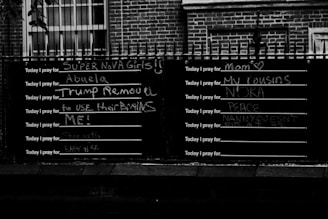 Today I pray for SUPER NOVA Girls!!
Today I pray for Abuela
Today I pray for Trump Removal
Today I pray for to USE their BRAINS
Today I pray for ME!
Today I pray for
Today I pray for
Today I pray for mom♡
Today I pray for My cousins
Today I pray for
Today I pray for PEACE
Today I pray for
Today I pray for
Today I pray for